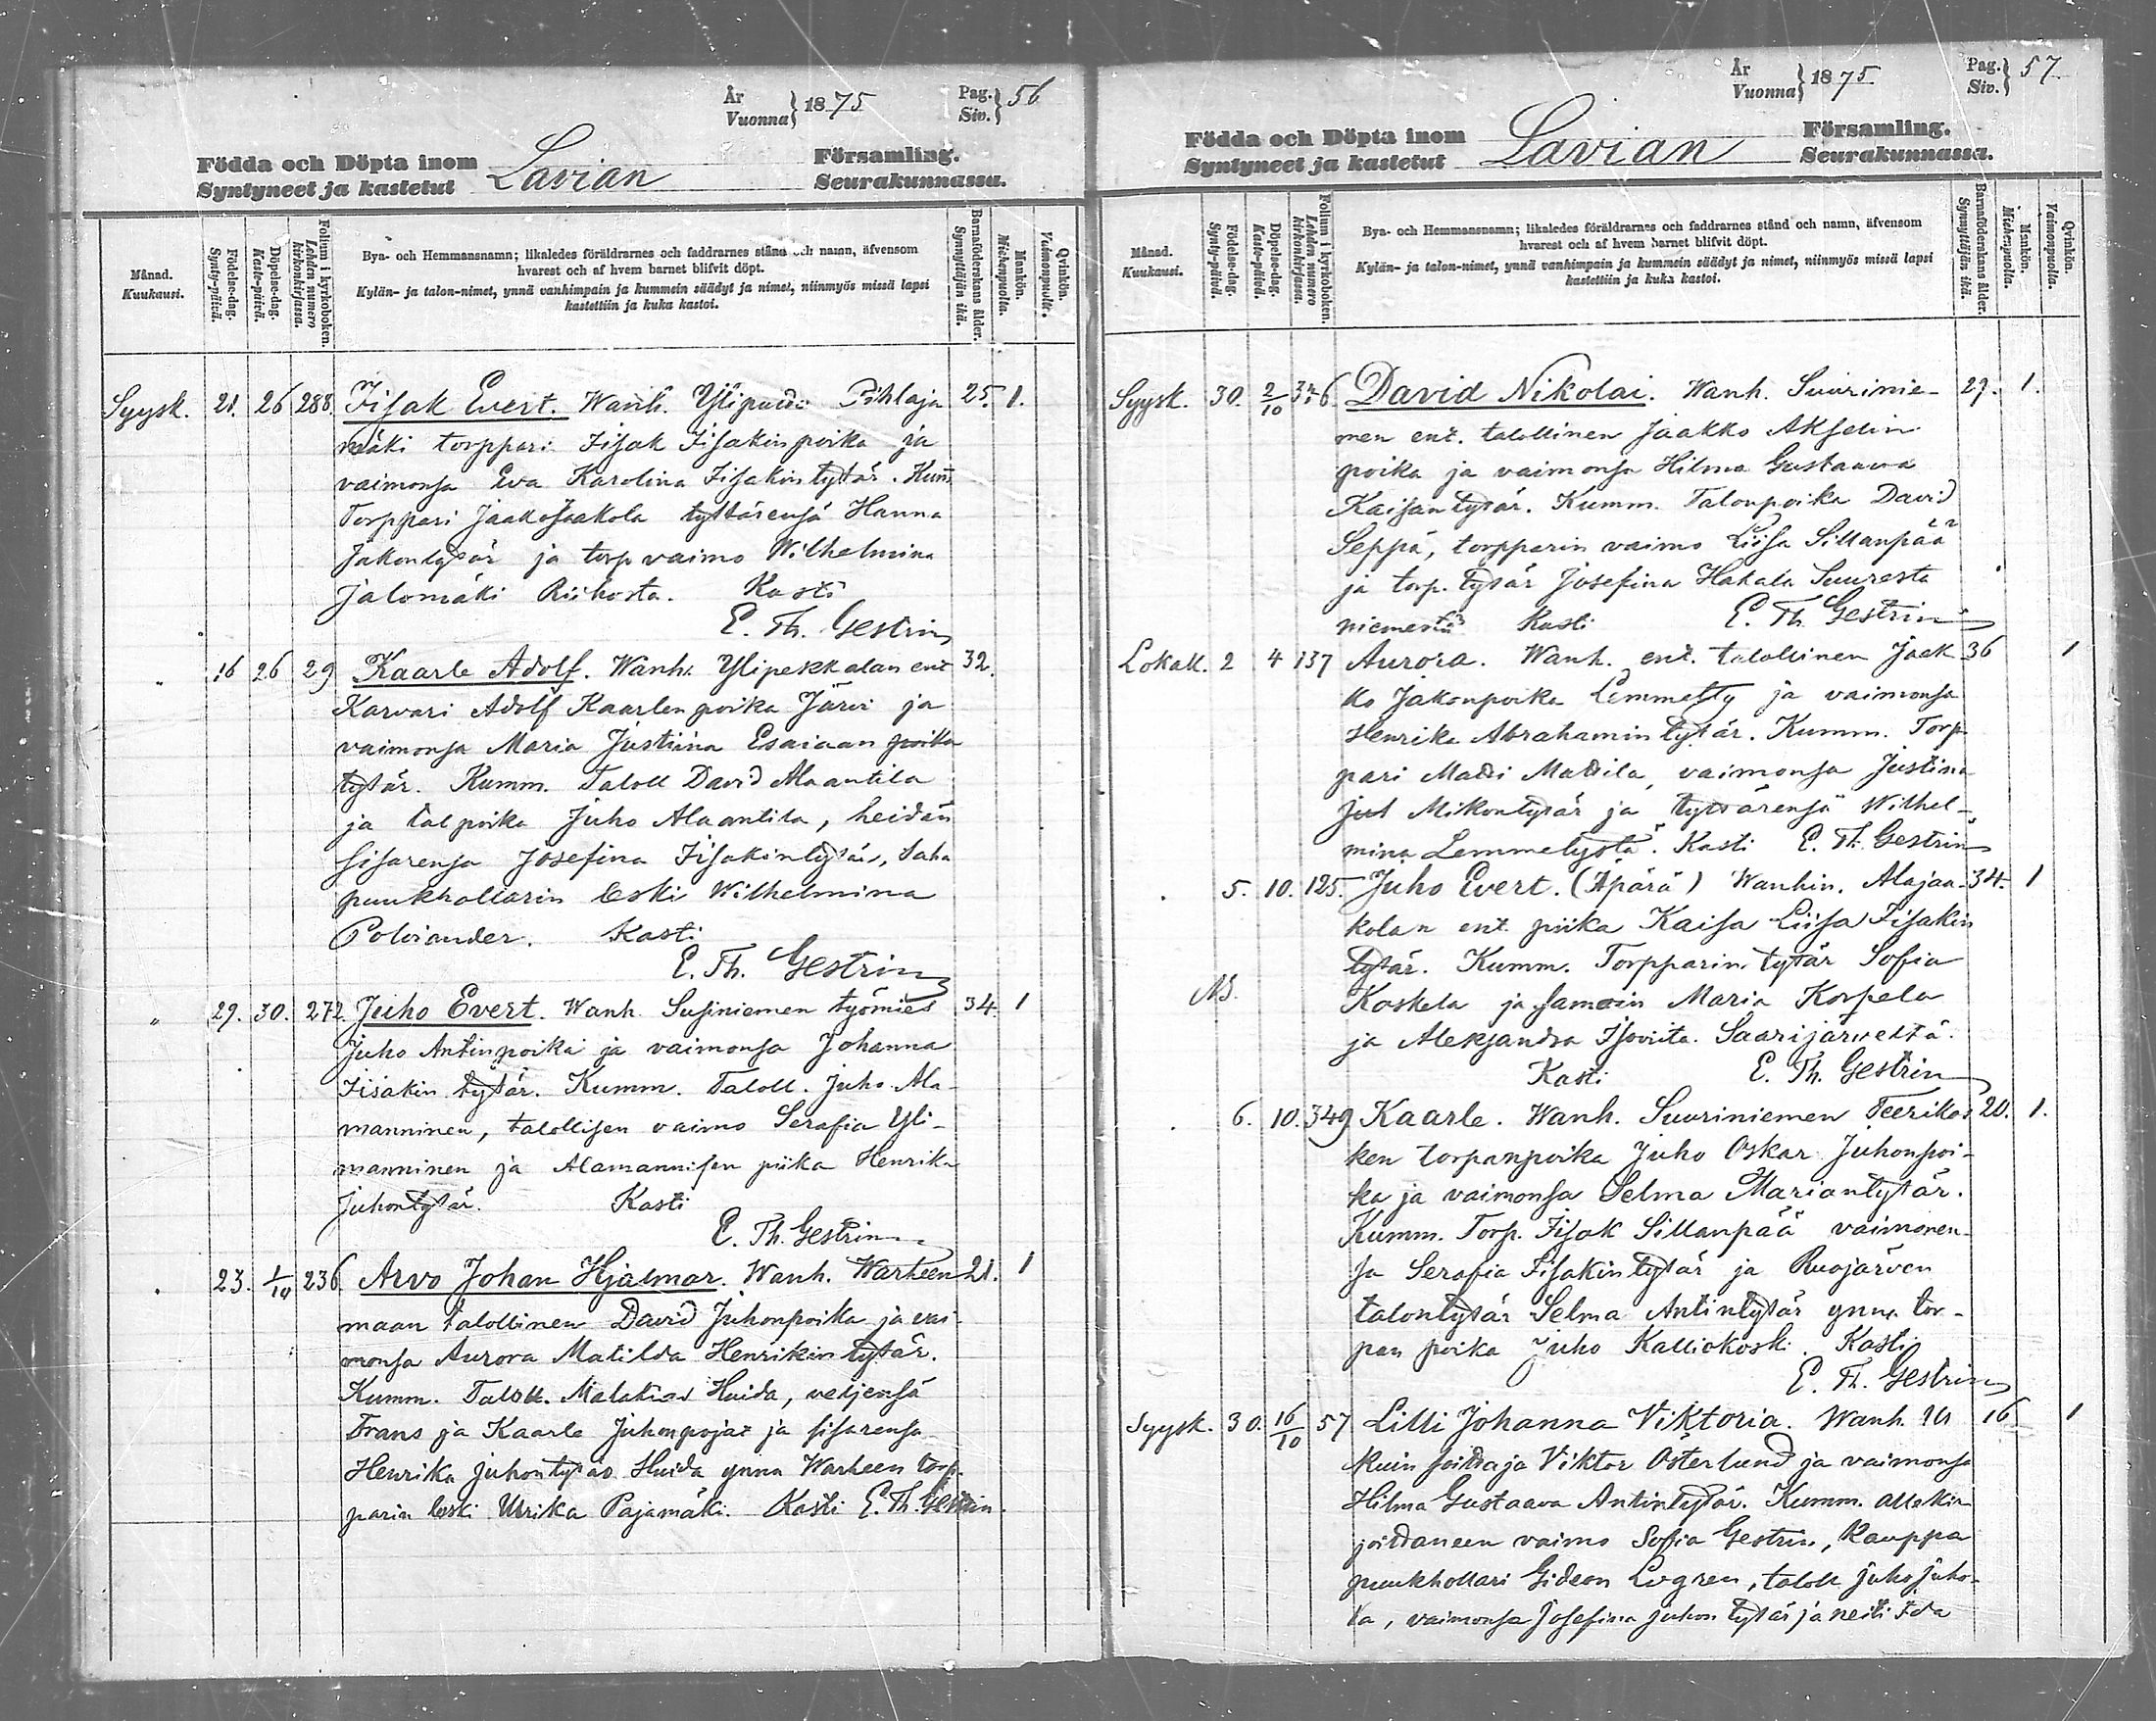 År
Vuonna } 1875
Pag.
Siv. } 56
Födda och Döpta inom
Syntyneet ja kastetut
Lavian
Församling.
Seurakunnassa.
Månad.
Kuukausi.
Födelse-dag.
Synty-päivä.
Döpelse-dag.
Kaste-päivä.
Folium i kyrkoboken.
Lehden numero kirkonkirjassa.
Bya- och Hemmansnamn; likaledes föräldrarnes och faddrarnes stånd och namn, äfvensom
hvarest och af hvem barnet blifvit döpt.
Kylän- ja talon-nimet, ynnä vanhimpain ja kummein säädyt ja nimet, niinmyös missä lapsi
kastettiin ja kuka kastoi.
Barnaföderskans ålder.
Synnyttäjän ikä.
Mankön.
Miehenpuolta.
Qvinkön.
Vaimonpuolta.
Syysk. 21. 26 288. Iisak Evert. Wanh. Pihlaja 25. 1.
mäki torppari Iisak Iisakinpoika ja
vaimonsa Eva Karolina Iisakintytär. Kum
Torppari Jaako Jaakola tyttärensä Hanna
Jakontytär ja torp vaimo Wilhelmina
Jalomäki Riihosta. Kasti
E. Th. Gestrin
" 16 26 29 Kaarle Adolf. Wanh. Ylipekkalan ent 32.
Karvari Adolf Kaarlen poika Järvi ja
vaimonsa Maria Justiina Esaiaan poika
tytär. Kumm. Taloll David Alaantila
ja tal poika Juho Alaantila, heidän
sisarensa Josefina Iisakintytär, Saha
puukhollarin leski Wilhelmina
Polviander. Kasti
E. Th. Gestrin
" 29. 30. 272. Juho Evert. Wanh. Susiniemen työmies 34. 1
Juho Antinpoika ja vaimonsa Johanna
Iisakin tytär. Kumm. Taloll. Juho Ala-
manninen, talollisen vaimo Serafia Yli-
manninen ja Alamannisen piika Henrika
Juhontytär. Kasti
E. Th. Gestrin
. 23. 1/10 236. Arvo Johan Hjalmar. Wanh. Warheen 21. 1
maan talollinen David Juhonpoika ja vai-
monsa Aurora Matilda Henrikin tytär.
Kumm. Taloll. Malakias Huida, veljensä
Frans ja Kaarle Juhonpojat ja sisarensa
Henrika Juhontytär Huida ynnä Warheen torp-
parin leski Ulrika Pajamäki. Kasti E. Th. Gestrin.
År
Vuonna } 1875
Pag.
Siv. } 57
Födda och Döpta inom
Syntyneet ja kastetut
Lavian
Församling.
Seurakunnassa.
Månad.
Kuukausi.
Födelse-dag.
Synty-päivä.
Döpelse-dag.
Kaste-päivä.
Folium i kyrkoboken.
Lehden numero kirkonkirjassa.
Bya- och Hemmansnamn; likaledes föräldrarnes och faddrarnes stånd och namn, äfvensom
hvarest och af hvem barnet blifvit döpt.
Kylän- ja talon-nimet, ynnä vanhimpain ja kummein säädyt ja nimet, niinmyös missä lapsi
kastettiin ja kuka kastoi.
Barnaföderskans ålder.
Synnyttäjän ikä.
Mankön.
Miehenpuolta.
Qvinkön.
Vaimonpuolta.
Syysk. 30. 2/10 346 David Nikolai. Wanh. Suurinie- 29. 1.
men ent. talollinen Jaakko Akselin
poika ja vaimonsa Hilma Gustaava
Kaisantytär. Kumm. Talonpoika David
Seppä, torpparin vaimo Liisa Sillanpää
ja torp. tytär Josefina Hakala Suuresta
niemestä Kasti E. Th. Gestrin
Lokak. 2 4 137 Aurora. Wanh. ent. talollinen Jaak 36 1
ko Jakonpoika Lemmetty ja vaimonsa
Henrika Abrahamintytär. Kumm. Torp-
pari Matti Mattila, vaimonsa Justina
Mikontytär ja tyttärensä Wilhel-
mina Lemmetystä. Kasti E. Th. Gestrin
. 5. 10. 125. Juho Evert. (Äpärä) Wanhin. Alajaa- 34. 1
kolan ent. piika Kaisa Liisa Iisakin
tytär. Kumm. Torpparin tytär Sofia
Koskela ja samoin Maria Korpela
ja Aleksandra Saarijärveltä.
Kasti E. Th. Gestrin
. 6. 10. 349 Kaarle. Wanh. Suuriniemen Teerikos 20. 1.
ken torpanpoika Juho Oskar Juhonpoi-
ka ja vaimonsa Selma Mariantytär.
Kumm. Torp. Iisak Sillanpää vaimonen-
sa Serafia Iisakintytär ja Ruojärven
talontytär Selma Antintytär ynnä tor-
pan poika Juho Kalliokoski. Kasti
E. Th. Gestrin
Syysk. 30. 16/10 57 Lilli Johanna Viktoria. Wanh. Lu 16 1
kuin soittaja Viktor Österlund ja vaimonsa
Hilma Gustaava Antintytär. Kumm.
vaimo Sofia Gestrin, Kauppa
puukhollari Gideon Lvgren, taloll Juho Juho-
la, vaimonsa Josefina Juhon tytär ja neiti Ida